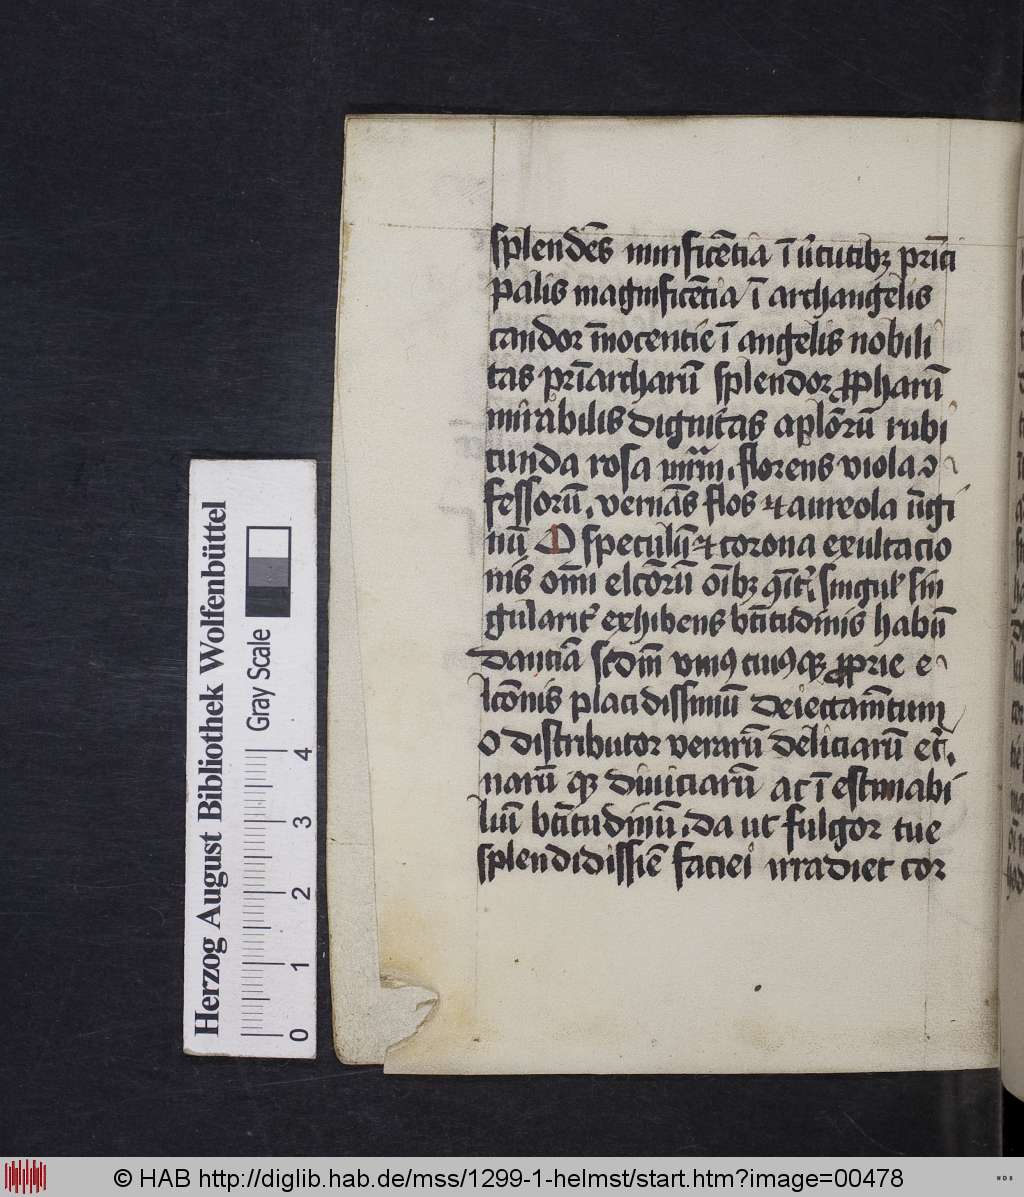 splendēs mirificētia ī v̄tutibꝫ prīci
palis magnificētia ī archangelis
candor īnocentie ī angelis nobili
tas pr̄iarcharū splendor ꝓpharū
mirabilis dignitas aplōrū rubi
cunda rosa mr̄m florens viola ↄ
fessorū vernās flos ⁊ aureola v̄gi
nū O speculū ⁊ corona exultacio
nis om̄i elcōrū oībꝫ
gularit᷑ exhibens btītudinis habū
dantiā scdm̄ vniꝰ cuiꝰqꝫ ꝓprie e
lcōnis placidissimū deiectamētum
o distributor verarū deliciarū et᷑
narū qꝫ diuiciarū ac ī estimabi
liū btītudinū da ut fulgor tue
splendidissīe faciei irradiet cor
Herzog August Bibliothek Wolfenbüttel
Gray Scale
0 1 2 3 4
© HAB http://diglib.hab.de/mss/1299-1-helmst/start.htm?image=00478